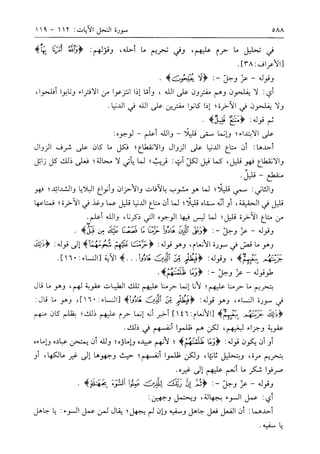 ٥٨٨ سورة النحل الآيات: ١١٢ - ١١٩
في تحليل ما حرم عليهم، وفي تحريم ما أحله، وقولهم: ﴿وَٱللَّهُ أَمَرَنَا بِهَا﴾
[الأعراف: ٣٨].
وقوله - عز وجل -: ﴿لَا يُفْلِحُونَ﴾.
أي: لا يفلحون وهم مفترون على الله، وأما إذا انتزعوا من الافتراء وتابوا أفلحوا،
ولا يفلحون في الآخرة؛ إذا كانوا مفترين على الله في الدنيا.
ثم قوله: ﴿مَتَٰعٌ قَلِيلٌ﴾.
على الابتداء؛ وإنما سمّى قليلًا - والله أعلم - لوجوه:
أحدها: أن متاع الدنيا على الزوال والانقطاع؛ فكل ما كان على شرف الزوال
والانقطاع فهو قليل، كما قيل لكلّ آتٍ: قريبٌ؛ لما يأتي لا محالة؛ فعلى ذلك كل زائل
منقطع - قليلٌ.
والثاني: سمي قليلًا؛ لما هو مشوب بالآفات والأحزان وأنواع البلايا والشدائد؛ فهو
قليل في الحقيقة، أو أنّه سماه قليلًا؛ لما أن متاع الدنيا قليل عما وعد في الآخرة؛ فمتاعها
من متاع الآخرة قليل؛ لما ليس فيها الوجوه التي ذكرنا، والله أعلم.
وقوله - عز وجل -: ﴿وَعَلَى ٱلَّذِينَ هَادُوا۟ حَرَّمْنَا مَا قَصَصْنَا عَلَيْكَ مِن قَبْلُ﴾.
وهو ما قصّ في سورة الأنعام، وهو قوله: ﴿حَرَّمْنَا عَلَيْهِمْ شُحُومَهُمَا﴾ إلى قوله: ﴿ذَٰلِكَ
جَزَيْنَٰهُم بِبَغْيِهِمْ﴾، وقوله: ﴿فَبِظُلْمٍ مِّنَ ٱلَّذِينَ هَادُوا۟...﴾ الآية [النساء: ١٦٠].
طوقوله - عز وجل -: ﴿وَمَا ظَلَمْنَٰهُمْ﴾.
بتحريم ما حرمنا عليهم؛ لأنا إنما حرمنا عليهم تلك الطيبات عقوبة لهم، وهو ما قال
في سورة النساء، وهو قوله: ﴿فَبِظُلْمٍ مِّنَ ٱلَّذِينَ هَادُوا۟﴾ [النساء: ١٦٠]، وهو ما قال:
﴿ذَٰلِكَ جَزَيْنَٰهُم بِبَغْيِهِمْ﴾ [الأنعام: ١٤٦] أخبر أنه إنما حرم عليهم ذلك؛ بظلم كان منهم
عقوبة وجزاء لبغيهم، لكن هم ظلموا أنفسهم في ذلك.
أو أن يكون قوله: ﴿وَمَا ظَلَمْنَٰهُمْ﴾؛ لأنهم عبيده وإماؤه؛ ولله أن يمتحن عباده وإماءه
بتحريم مرة، وبتحليل ثانيًا، ولكن ظلموا أنفسهم؛ حيث وجهوها إلى غير مالكها، أو
صرفوا شكر ما أنعم عليهم إلى غيره.
وقوله - عز وجل -: ﴿ثُمَّ إِنَّ رَبَّكَ لِلَّذِينَ عَمِلُوا۟ ٱلسُّوٓءَ بِجَهَٰلَةٍ﴾.
أي: عمل السوء بجهالة، ويحتمل وجهين:
أحدهما: أن الفعل فعل جاهل وسفيه وإن لم يجهل؛ يقال لمن عمل السوء: يا جاهل
يا سفيه.